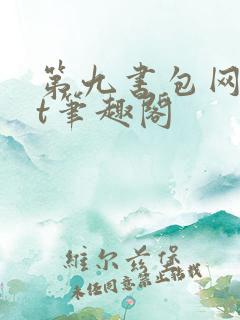 第九书包网
t笔趣阁
维尔兹堡
未经同意禁止转载